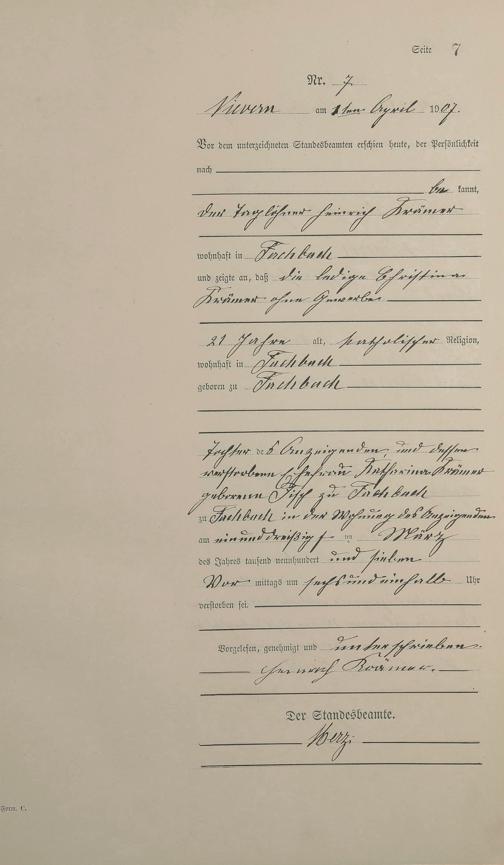 Seite 7
Nr. 7
Nievern am 1ten April 1907.
Vor dem unterzeichneten Standesbeamten erschien heute, der Persönlichkeit
nach
be kannt,
der Taglöhner Heinrich Krämer
wohnhaft in Fachbach
und zeigte an, daß die ledige Christina
Krämer ohne Gewerbe
21 Jahre alt, katholischer Religion,
wohnhaft in Fachbach
geboren zu Fachbach
Tochter des Anzeigenden und dessen
verstorbenen Ehefrau Katharina Krämer
geborenen zu Fachbach
zu Fachbach in der Wohnung des Anzeigenden
am einunddreißig ten März
des Jahres tausend neunhundert und sieben
Vor mittags um sechs und einhalb Uhr
verstorben sei.
Vorgelesen, genehmigt und unterschrieben.
Heinrich Krämer.
Der Standesbeamte.
Merz.
Form. C.